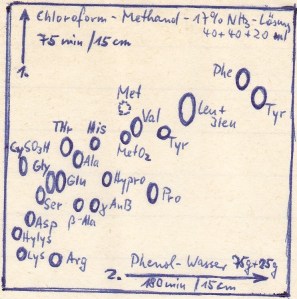 Chloroform - Methanol - 17% NH₃-Lösung
40+40+20 ml
75 min/15 cm
1.
Phe
Tyr
Met
Leu+
Ileu
Val
Tyr
MetO₂
Thr
His
CySO₃H
Ala
Gly
Glu
Hypro
Pro
Ser
β-Ala
γAnB
Asp
Hylys
Lys
Arg
2.
Phenol-Wasser 75g+25g
180 min/15cm